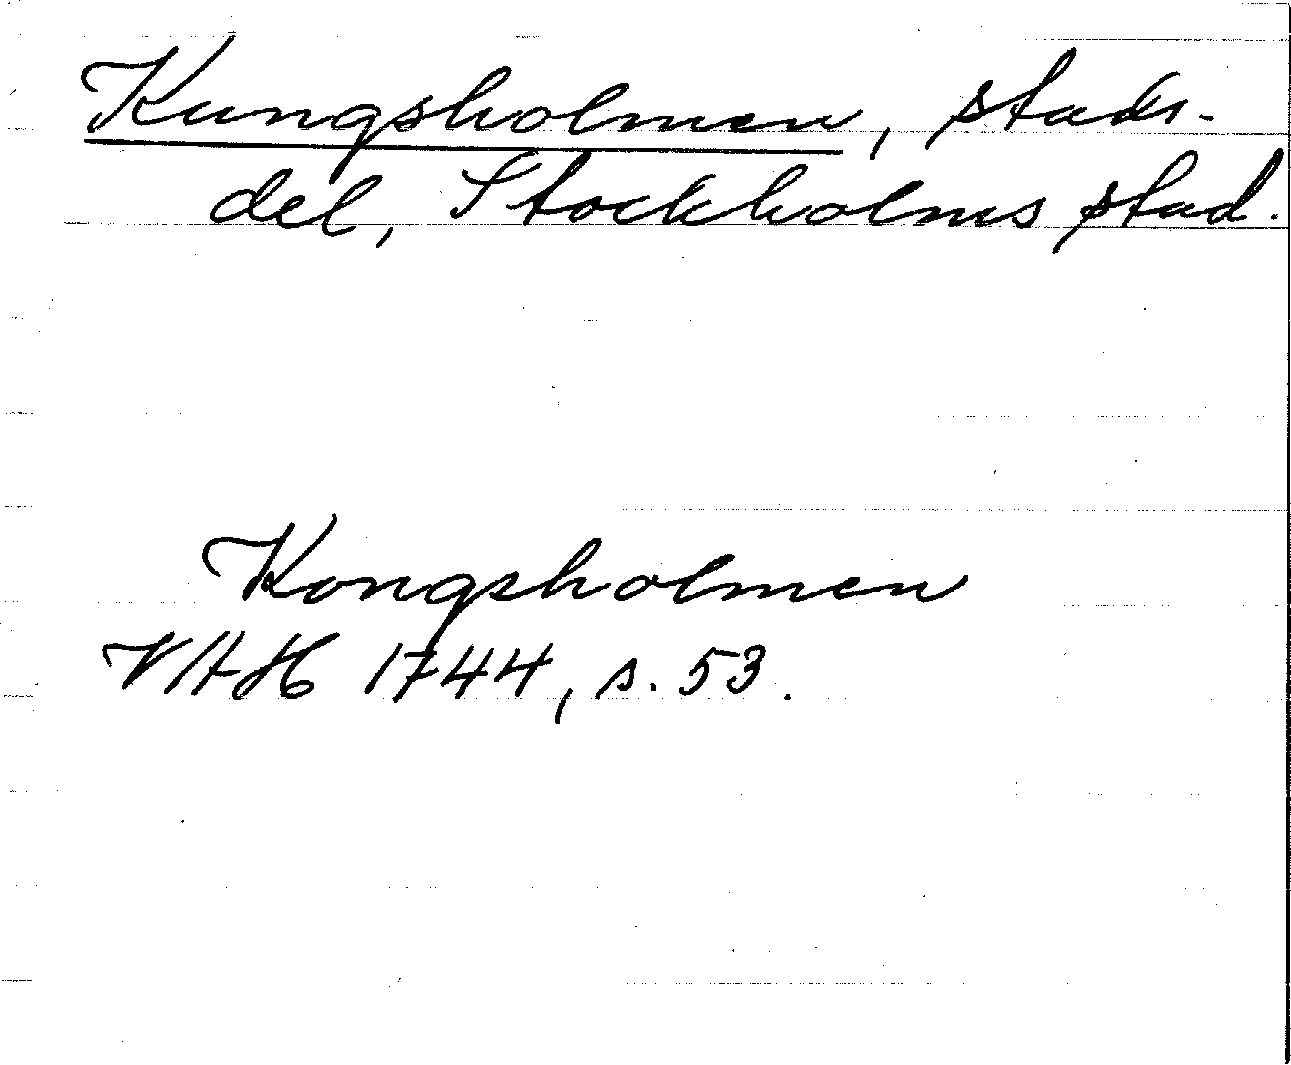 Kungsholmen, stads-
del, Stockholms stad.
Kongsholmen
VAH 1744, s. 53.